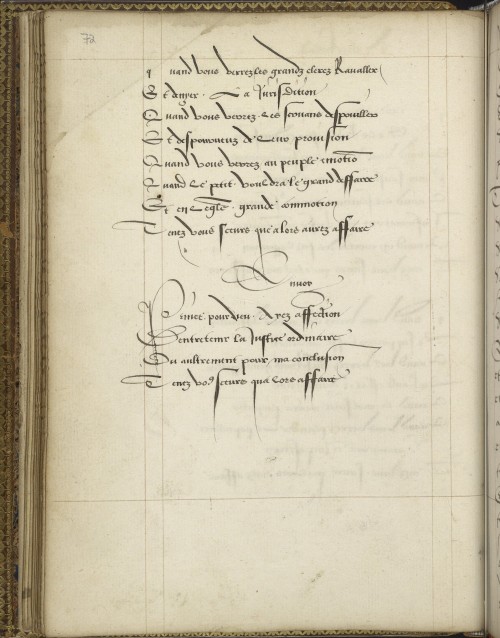 72
Quand vous verrez les grandz clercz Ravaller
Et denyer La Jurisdition
Quand vous verrez Les scavans despouller
Et despourveuz de Leur provision
Quand vous verrez au peuple imotio
Quand Le petit vouldra le grand deffaire
Et en Legle grande commotion
Tenez vous seurs que alors aurez affaire
Envoy
Prince pour dieu Ayez affection
Dentretenir La Justice ordinaire
Ou aultrement pour ma conclusion
Tenez vo9 seurs qua Lors affaire